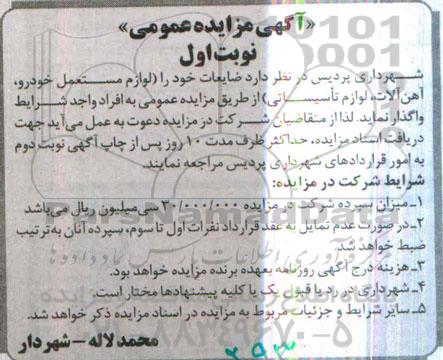 «آگهی مزایده عمومی»
نوبت اول
شهرداری پردیس در نظر دارد ضایعات خود را (لوازم مستعمل خودرو،
آهن آلات، لوازم تأسیساتی) از طریق مزایده عمومی به افراد واجد شرایط
واگذار نماید. لذا از متقاضیان شرکت در مزایده دعوت به عمل می‌آید جهت
دریافت اسناد مزایده، حداکثر ظرف مدت ۱۰ روز پس از چاپ آگهی نوبت دوم
به امور قراردادهای شهرداری پردیس مراجعه نمایند.
شرایط شرکت در مزایده:
۱-میزان سپرده شرکت در مزایده ۳۰/۰۰۰/۰۰۰ سی میلیون ریال می‌باشد
۲-در صورت عدم تمایل به عقد قرارداد نفرات اول تا سوم، سپرده آنان به ترتیب
ضبط خواهد شد
۳-هزینه درج آگهی روزنامه بعهده برنده مزایده خواهد بود.
۴-شهرداری در رد یا قبول یک یا کلیه پیشنهادها مختار است.
۵-سایر شرایط و جزئیات مربوط به مزایده در اسناد مزایده ذکر خواهد شد.
محمد لاله - شهردار
۲۹۳
ParsNamadData
۸۸۳۴۹۶۷۰-۵